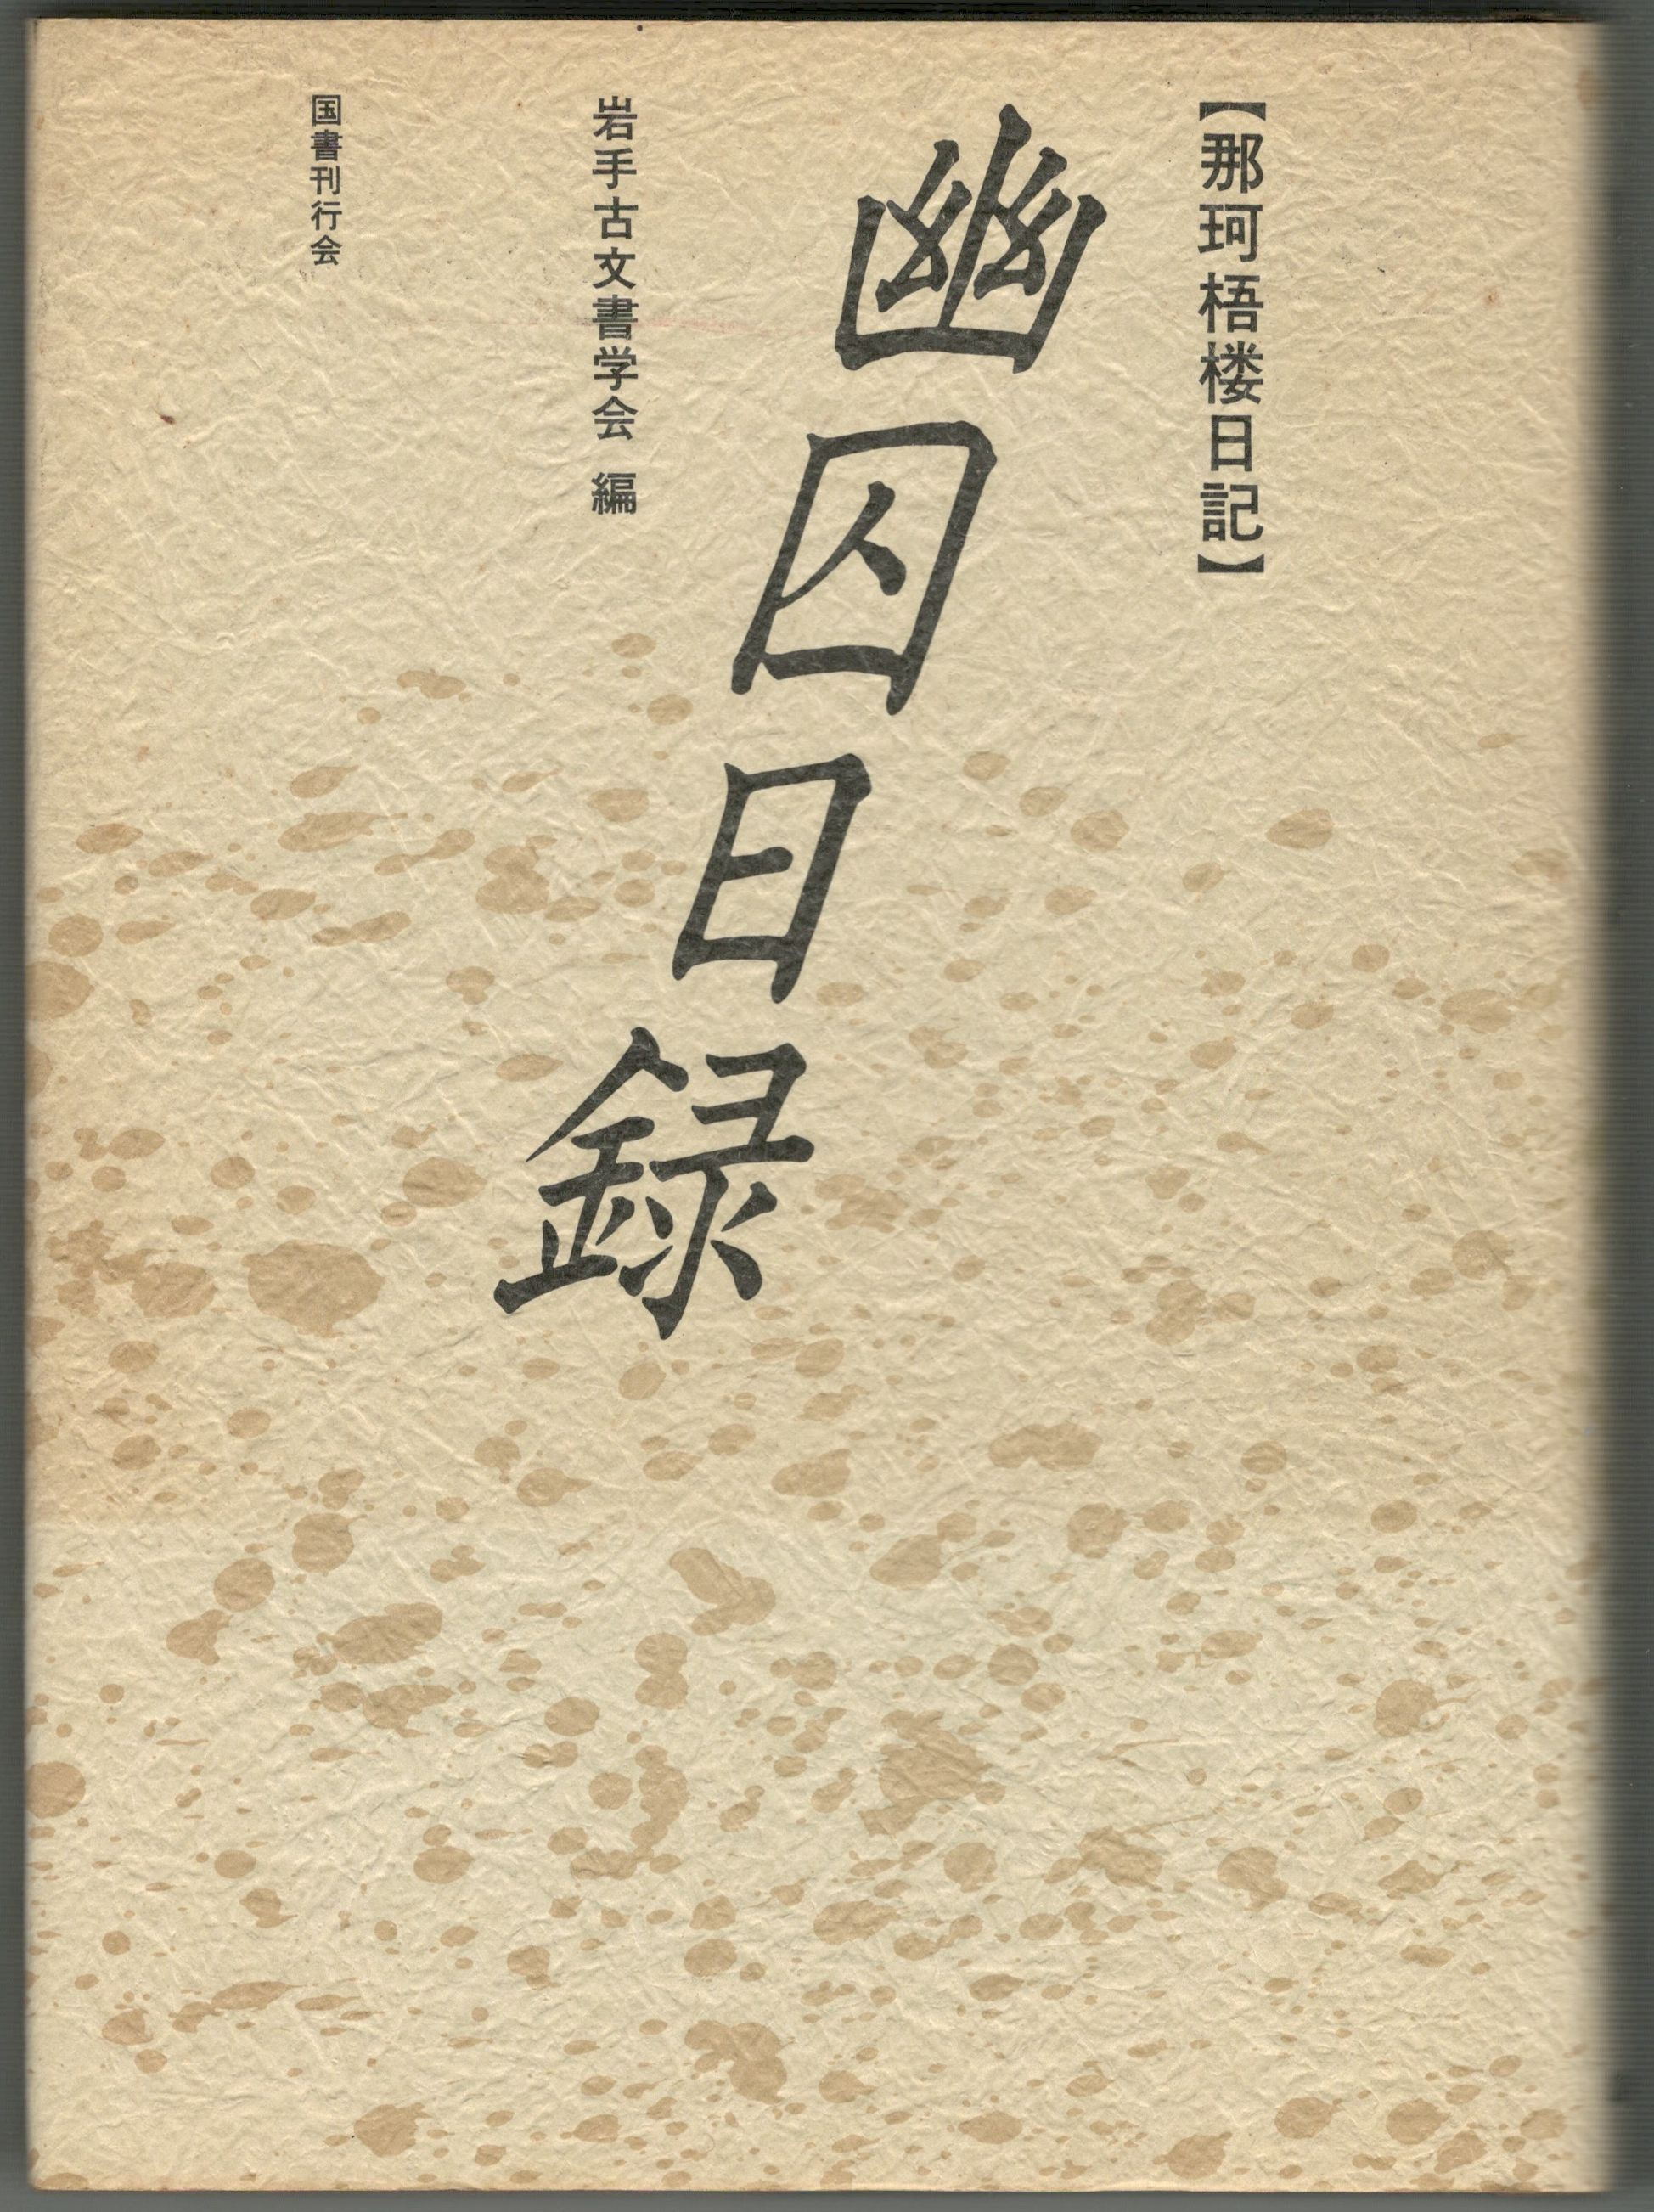 【那珂梧楼日記】
幽囚日録
岩手古文書学会 編
国書刊行会